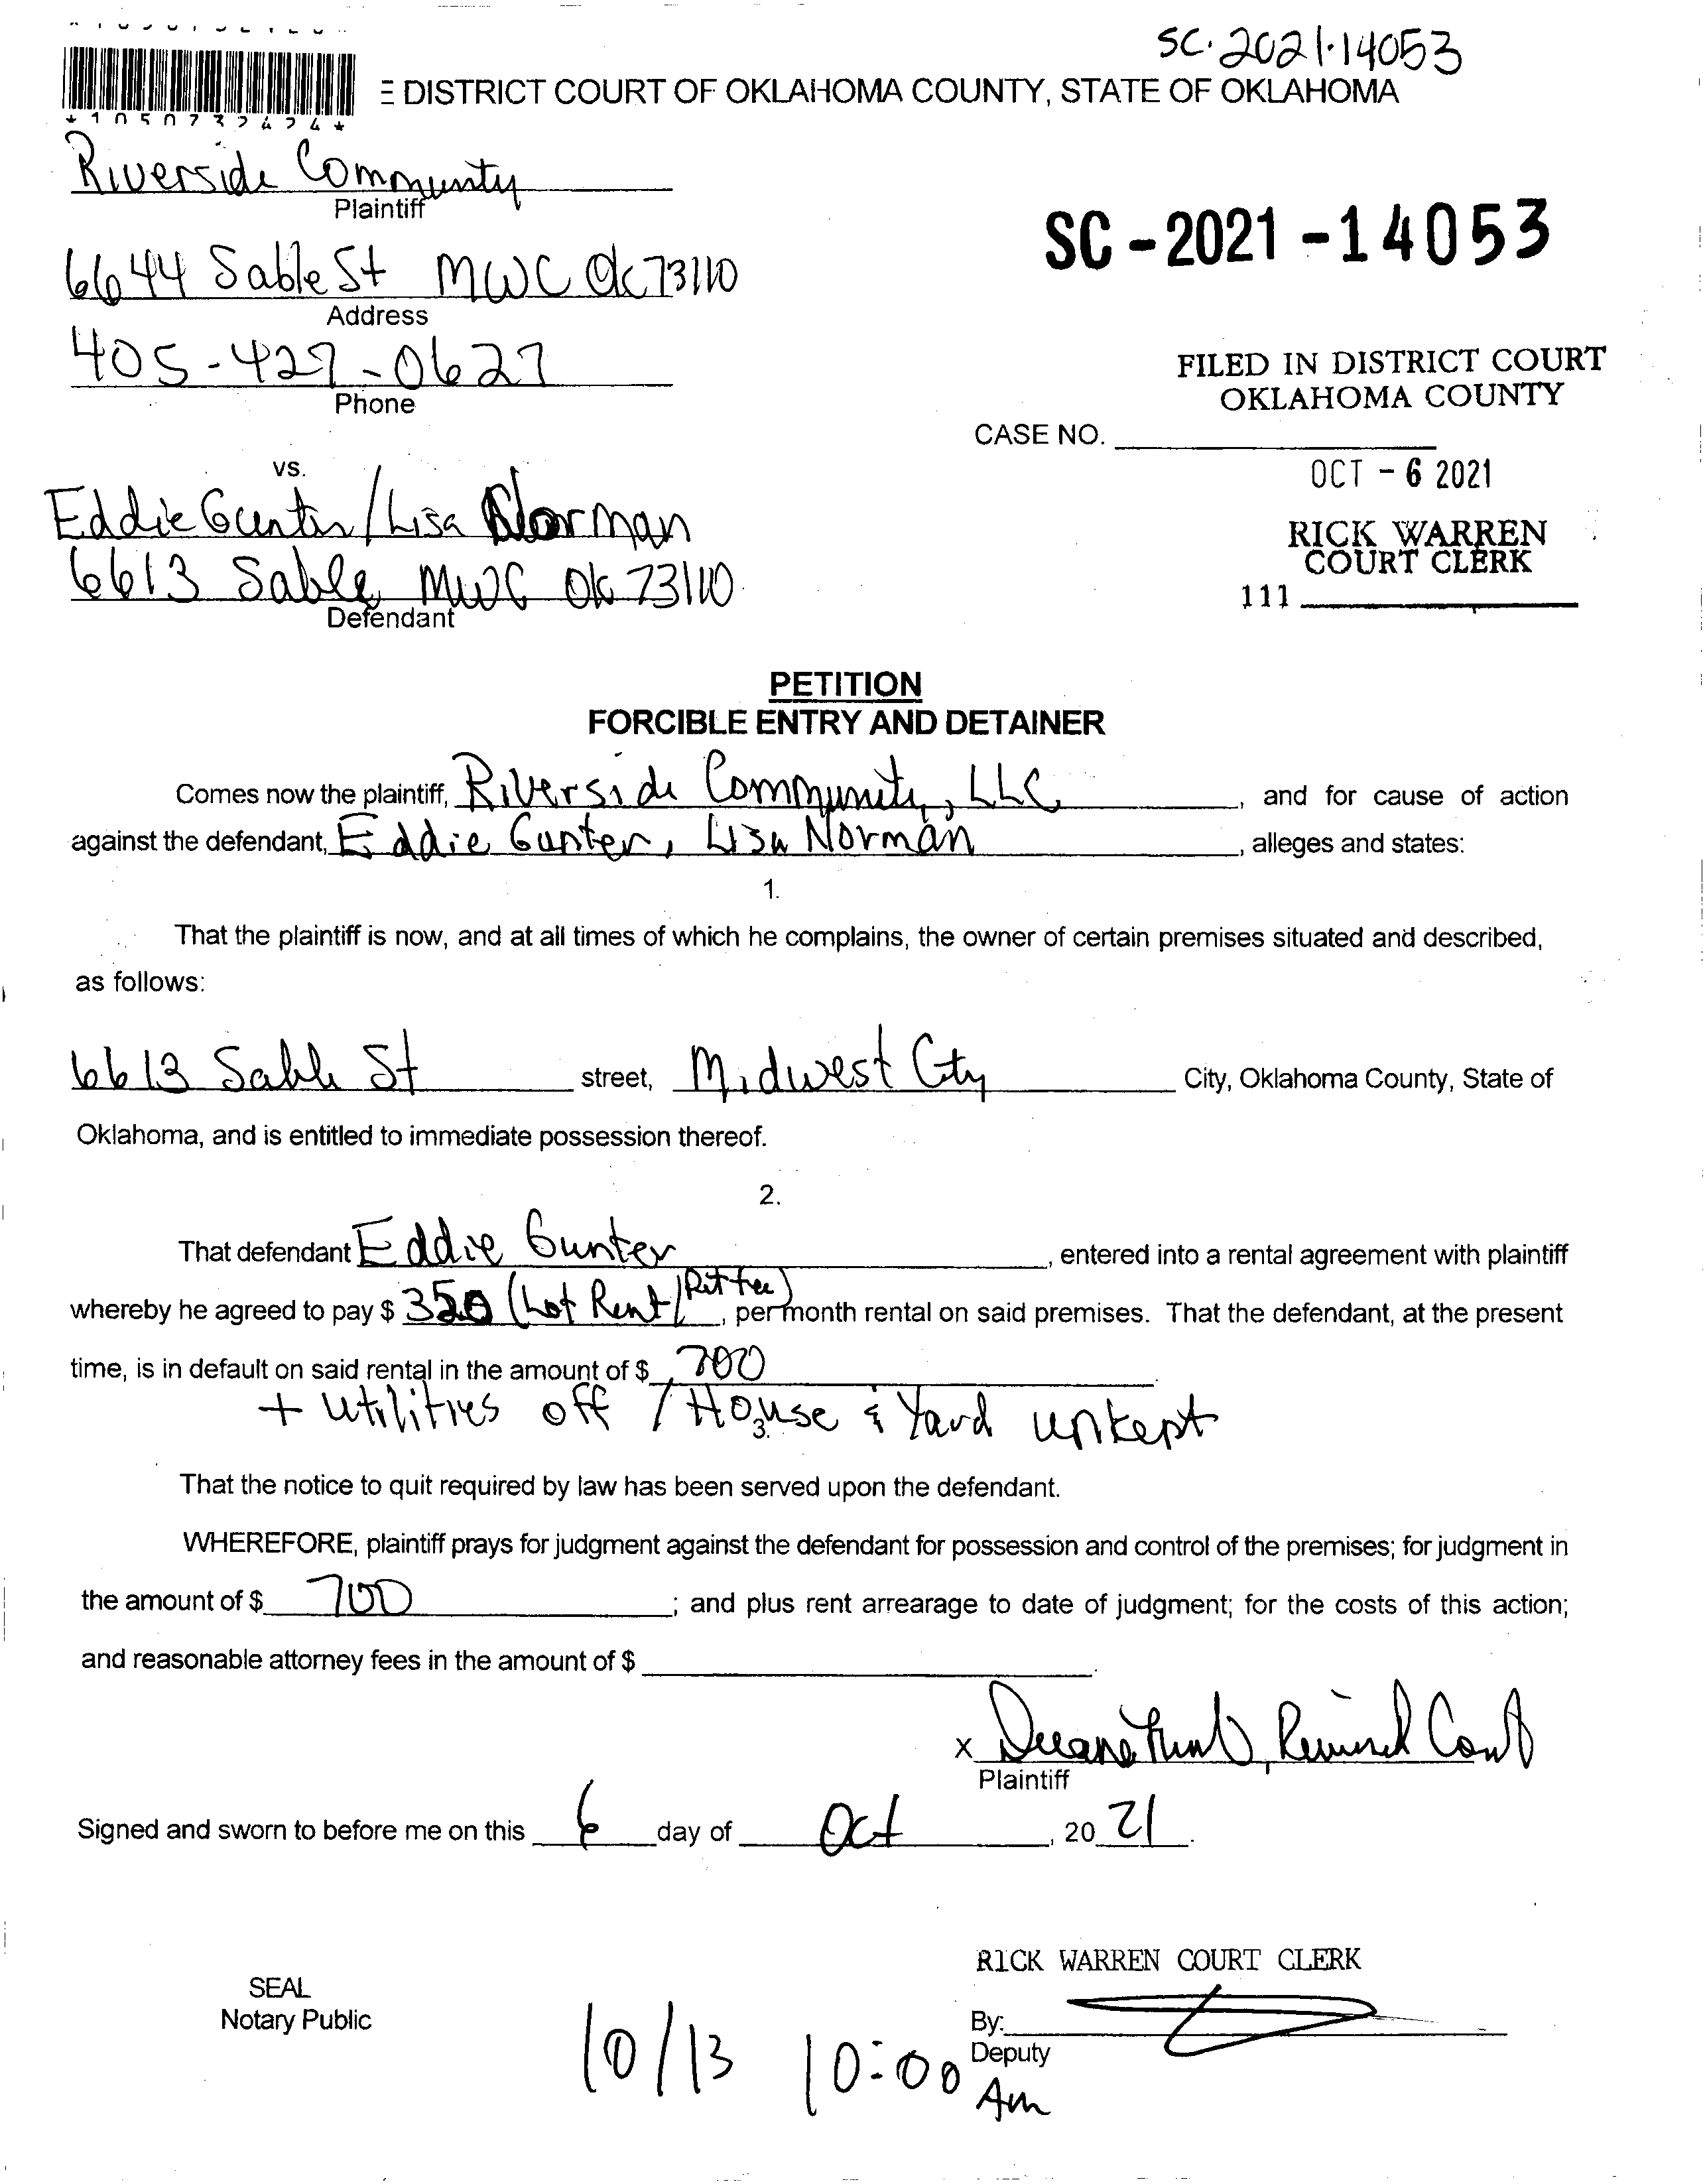 SC-2021-14053
DISTRICT COURT OF OKLAHOMA COUNTY, STATE OF OKLAHOMA
*1050732424*
Riverside Community
Plaintiff
SC-2021-14053
6644 Sable St MWC OK 73110
Address
405-427-0627
Phone
FILED IN DISTRICT COURT
OKLAHOMA COUNTY
CASE NO.
OCT - 6 2021
vs.
Eddie Gunter/Lisa Norman
RICK WARREN
COURT CLERK
6613 Sable MWC OK 73110
Defendant
111
PETITION
FORCIBLE ENTRY AND DETAINER
Comes now the plaintiff, Riverside Community, LLC, and for cause of action
against the defendant, Eddie Gunter, Lisa Norman, alleges and states:
1.
That the plaintiff is now, and at all times of which he complains, the owner of certain premises situated and described,
as follows:
6613 Sable St street, Midwest City City, Oklahoma County, State of
Oklahoma, and is entitled to immediate possession thereof.
2.
That defendant Eddie Gunter, entered into a rental agreement with plaintiff
whereby he agreed to pay $ 350 (Lot Rent/Pet fee), per month rental on said premises. That the defendant, at the present
time, is in default on said rental in the amount of $ 700.
+ utilities off / House & Yard unkept
3.
That the notice to quit required by law has been served upon the defendant.
WHEREFORE, plaintiff prays for judgment against the defendant for possession and control of the premises; for judgment in
the amount of $ 700; and plus rent arrearage to date of judgment; for the costs of this action;
and reasonable attorney fees in the amount of $
X Duane
Plaintiff
Signed and sworn to before me on this 6 day of Oct, 20 21.
RICK WARREN COURT CLERK
SEAL
Notary Public
By:
Deputy
10/13 10:00 Am